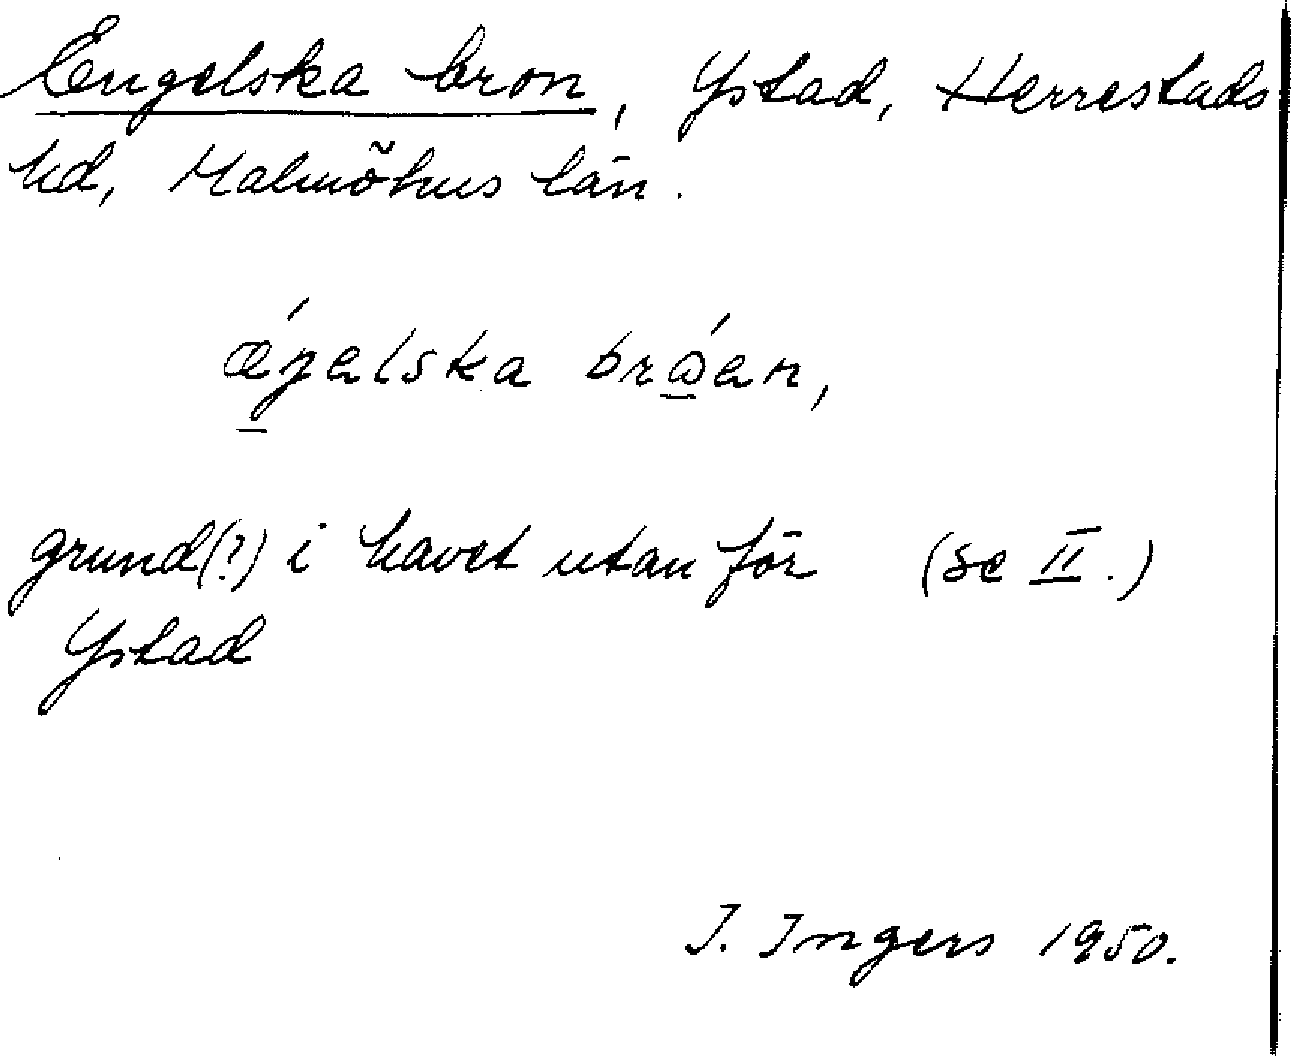 Engelska bron, Ystad, Herrestads
hd, Malmöhus län.
ǽŋelska bróen,
grund(?) i havet utanför (se II.)
Ystad
I. Ingers 1950.